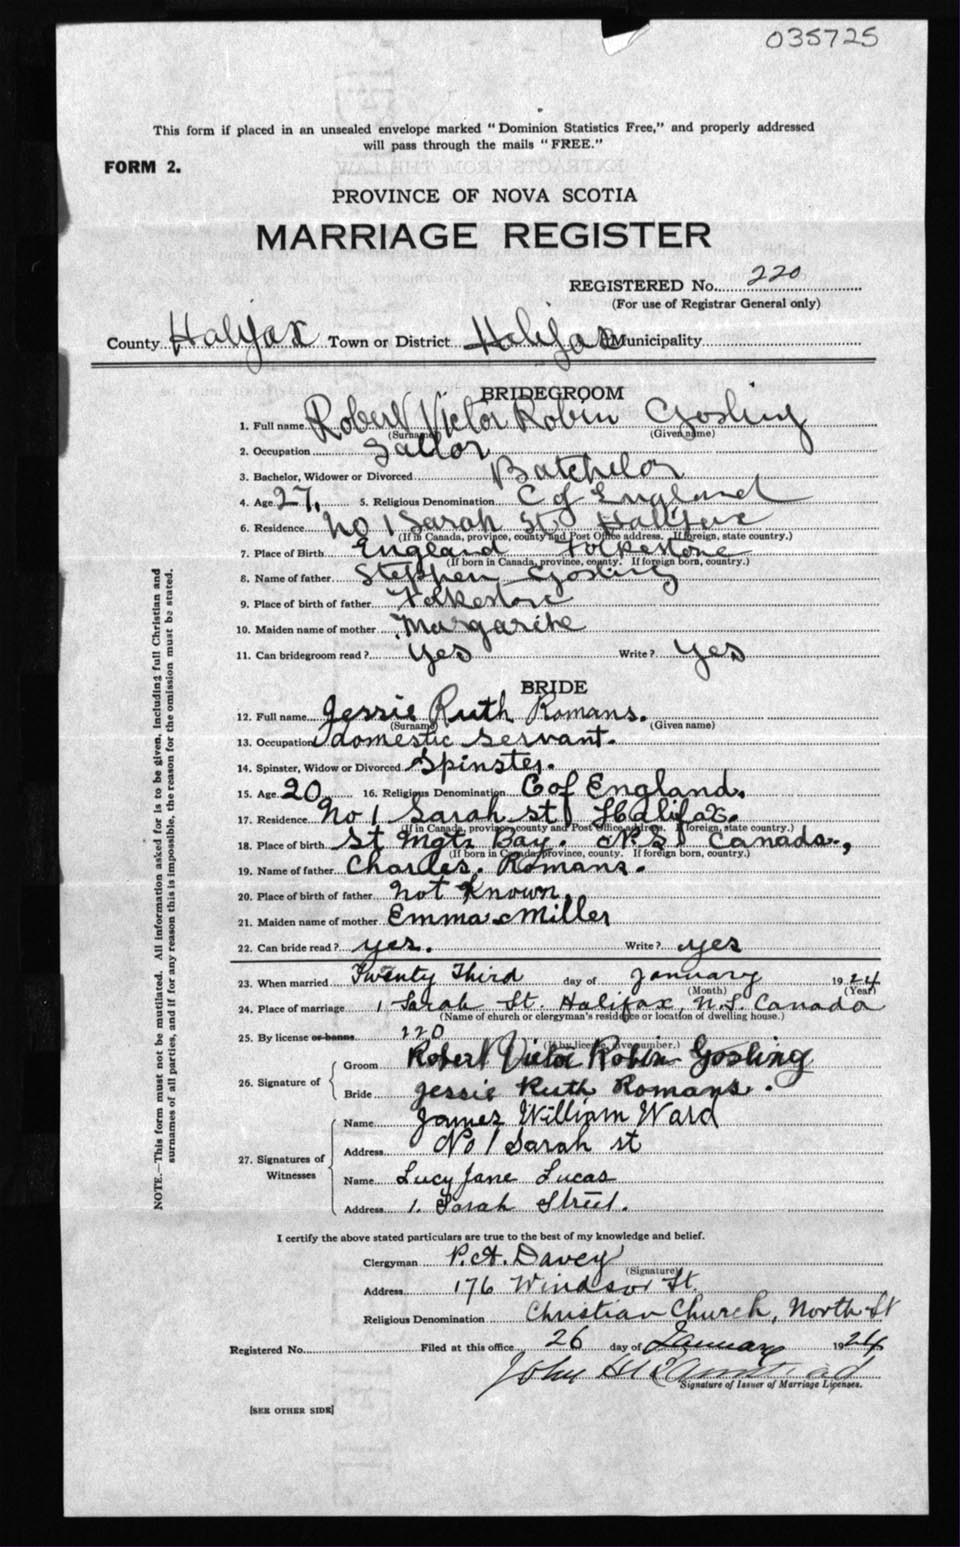 035725
This form if placed in an unsealed envelope marked "Dominion Statistics Free," and properly addressed
will pass through the mails "FREE."
FORM 2.
PROVINCE OF NOVA SCOTIA
MARRIAGE REGISTER
REGISTERED No. 220
(For use of Registrar General only)
County Halifax Town or District Halifax Municipality
BRIDEGROOM
1. Full name Robert Victor Robin Gosling
(Surname) (Given name)
2. Occupation Sailor
3. Bachelor, Widower or Divorced Batchelor
4. Age 27. 5. Religious Denomination C of England
6. Residence No 1 Sarah St Halifax
(If in Canada, province, county and Post Office address. If foreign, state country.)
7. Place of Birth England Folkestone
(If born in Canada, province, county. If foreign born, country.)
8. Name of father Stephen Gosling
9. Place of birth of father Folkestone
10. Maiden name of mother Margarite
11. Can bridegroom read? yes Write? yes
BRIDE
12. Full name Jessie Ruth Romans.
(Surname) (Given name)
13. Occupation domestic Servant.
14. Spinster, Widow or Divorced Spinster.
15. Age 20 16. Religious Denomination C of England.
17. Residence No 1 Sarah st Halifax.
(If in Canada, province, county and Post Office address. If foreign, state country.)
18. Place of birth St Mgts Bay. N.S. Canada.,
(If born in Canada, province, county. If foreign born, country.)
19. Name of father Charles. Romans.
20. Place of birth of father not Known
21. Maiden name of mother Emma Miller
22. Can bride read? yes. Write? yes
23. When married Twenty Third day of January 1924
(Month) (Year)
24. Place of marriage 1 Sarah St. Halifax, N.S. Canada
(Name of church or clergyman's residence or location of dwelling house.)
25. By license or banns 220
(If by license, give number.)
26. Signature of
Groom Robert Victor Robin Gosling
Bride Jessie Ruth Romans.
27. Signatures of Witnesses
Name James William Ward
Address No 1 Sarah st
Name Lucy Jane Lucas
Address 1. Sarah Street.
I certify the above stated particulars are true to the best of my knowledge and belief.
Clergyman P. A. Davey
(Signature)
Address 176 Windsor St.
Religious Denomination Christian Church, North St
Registered No. Filed at this office 26 day of January 1924
John H
Signature of Issuer of Marriage Licenses.
[SEE OTHER SIDE]
NOTE.—This form must not be mutilated. All information asked for is to be given, including full Christian and
surnames of all parties, and if for any reason this is impossible, the reason for the omission must be stated.